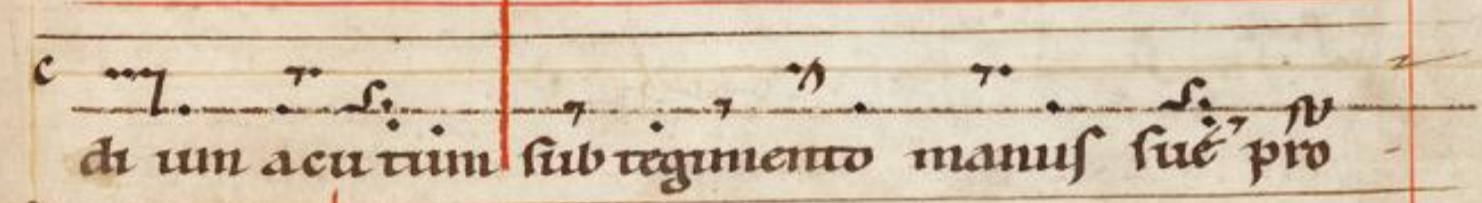 c
di um acutum sub tegimento manus sue pro